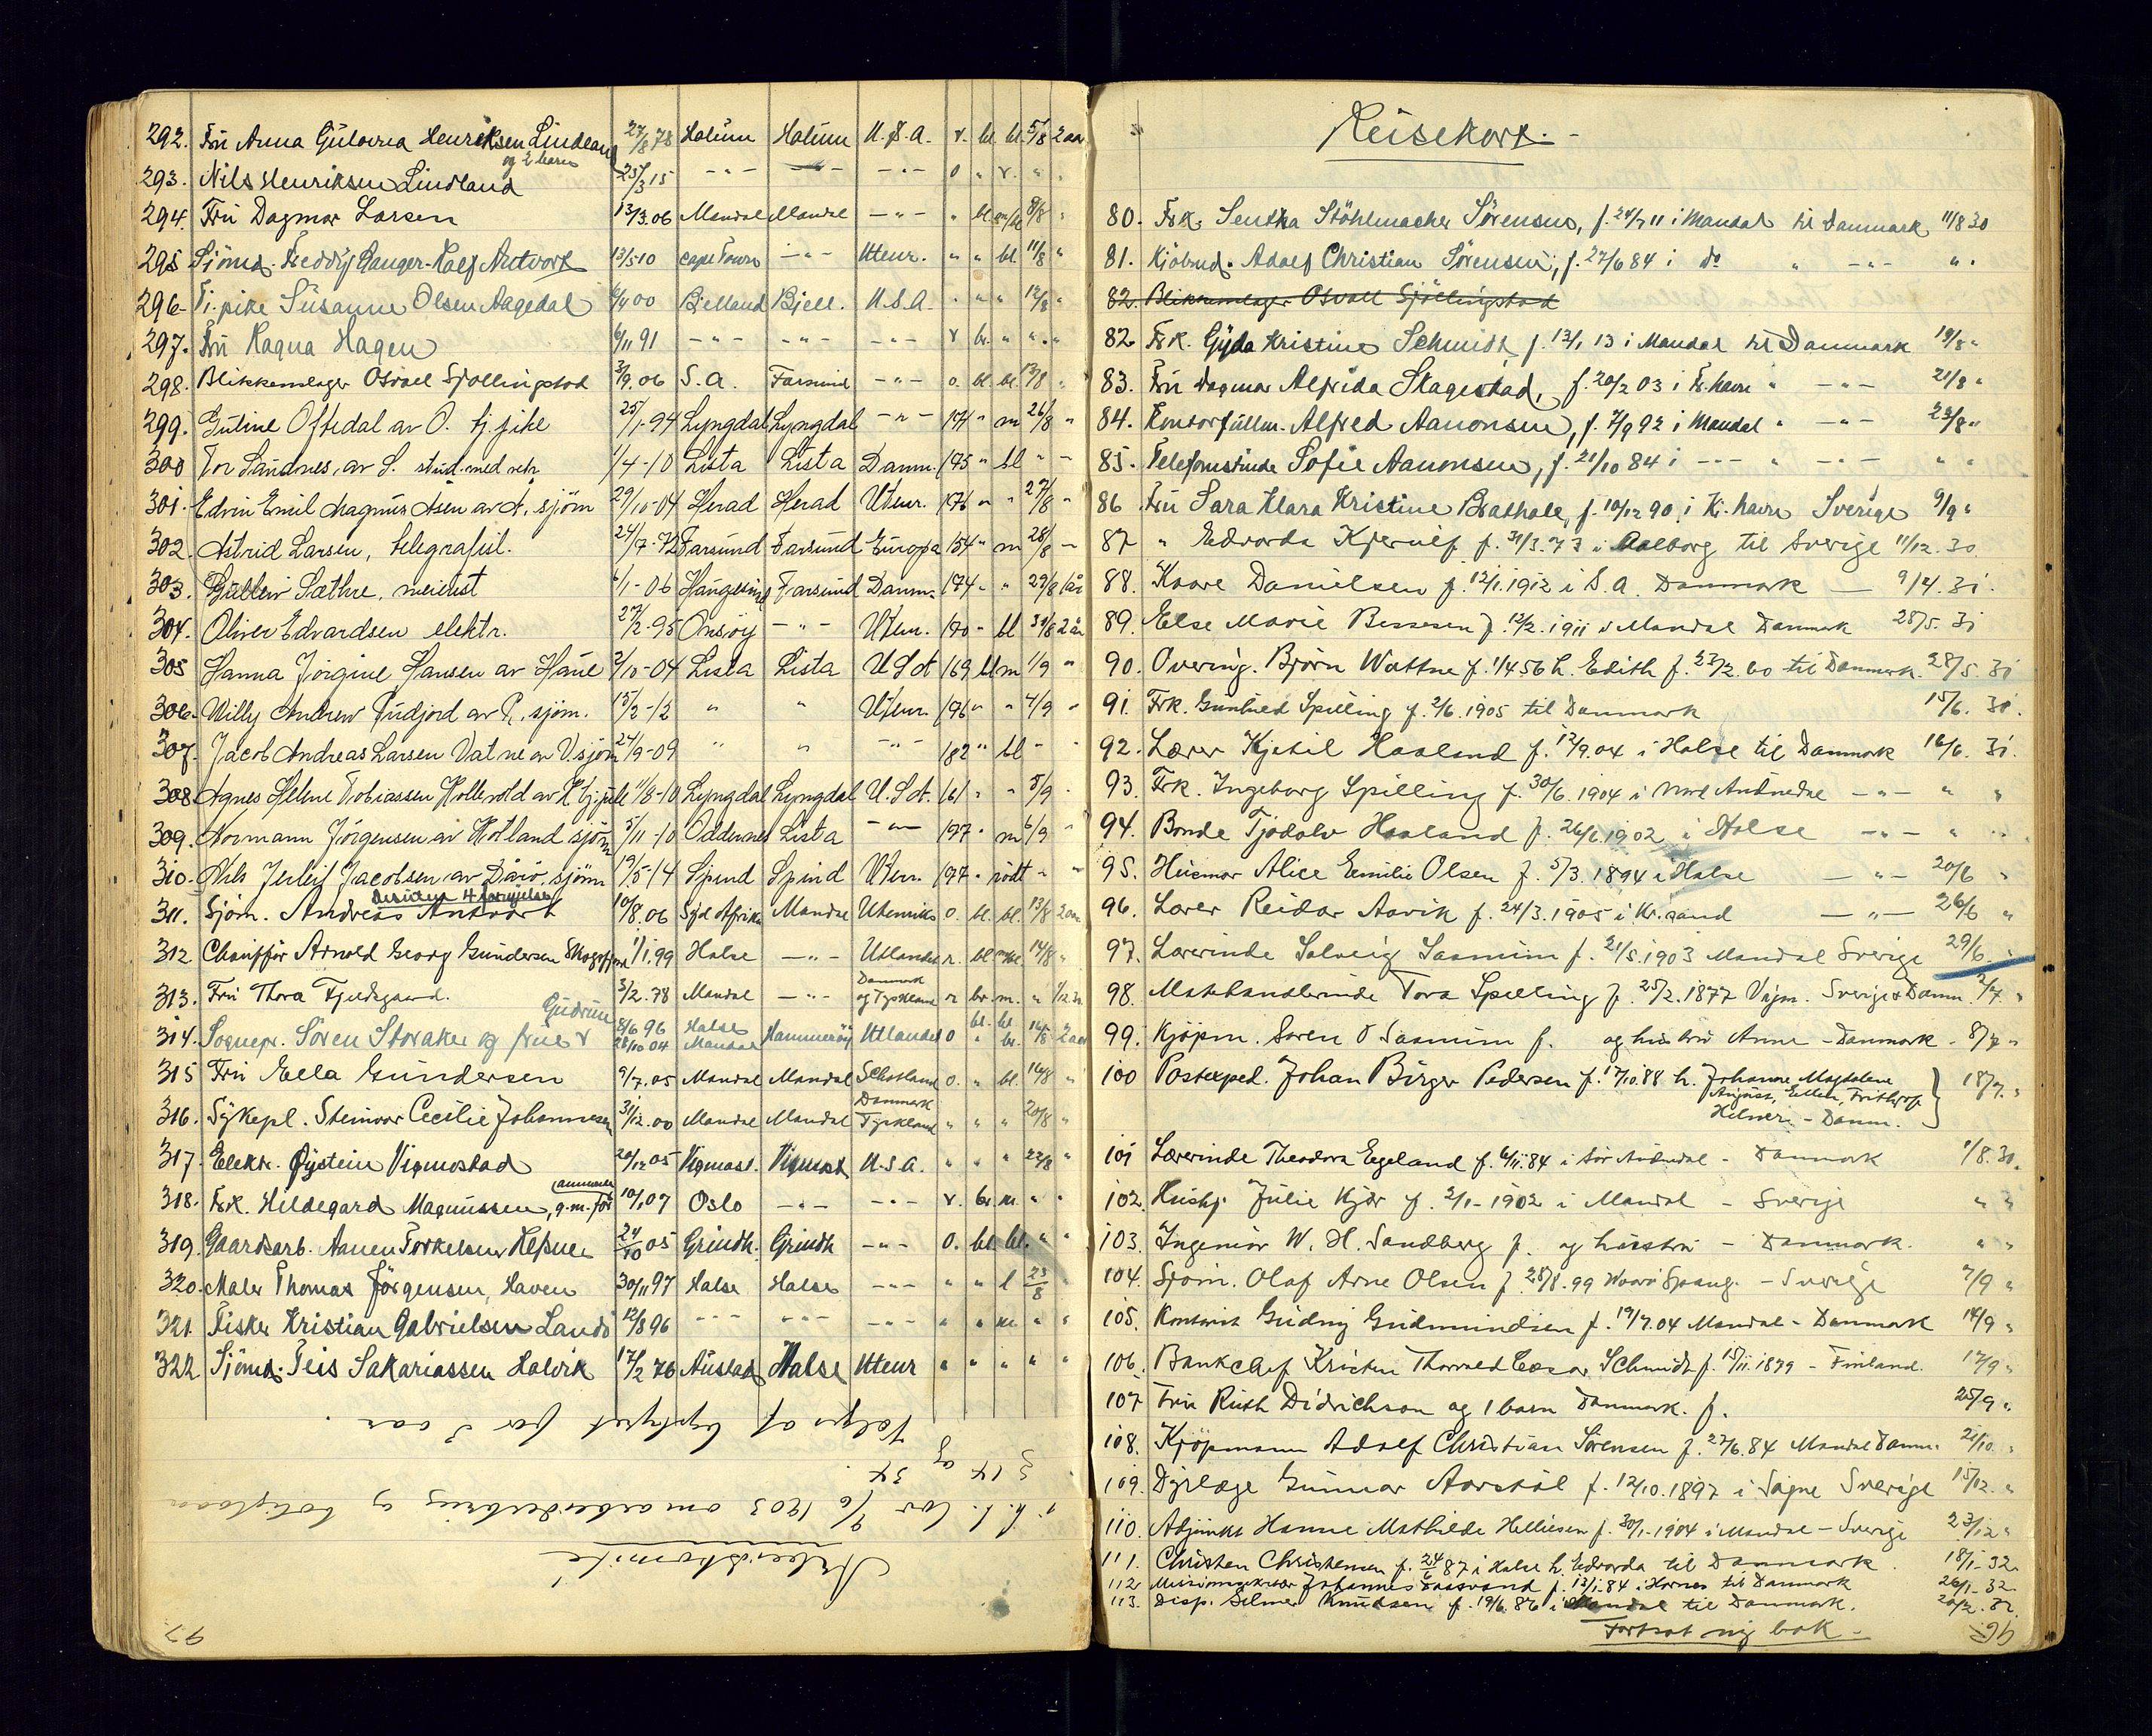 292. Fru Anna Henriksen 27/8 78 Halum Halum U.S.A. r. bl. bl. 5/8 2 aar
og 2 barn
293. Nils Henriksen Lindland 25/3 15 -"- -"- -"- o " r. " "
294. Fru Dagmar Larsen 13/3.06 Mandal Mandal -"- " bl. 8/8 "
295 Sjömd. Freddy 13/5-10 Cape Town -"- Utenr. " " bl. 11/8 "
296. Tj.pike Susanne Olsen Aagedal 00 Bjelland Bjell. U.S.A. " " " 12/8 "
297. Fru Ragna Hagen 6/11 91 -"- -"- -"- r br. " " "
298. Blikkenslager Osvall Sjøllingstad 06 S.A. Farsund -"- o. bl. bl. 13/8 "
299. Gutine Oftedal av O. tj.pike 25/1-94 Lyngdal Lyngdal -"- 174 " m 26/8 "
300 Tor Sandnes, av L. stud.med.vet. 1/4-10 Lista Lista Danm. 175 " bl " -
301. Edvin Emil Magnus Asen av A. sjöm 29/10-04 Herad Herad Utenr. 176 " " 27/8 "
302. Astrid Larsen, telegrafist. 24/7-72 Farsund Farsund Europa 154 " m 28/8 -
303. Sæthre, meierist 6/1-06 Haugesund Farsund Danm. 174 - " 29/8 1 år
304. Oliver Edvardsen elektr. 27/2-95 Onsøy -"- Utenr. 170 - bl 30/8 2 år
305 Hanna Jörgine Hansen av Haue 2/10-04 Lista Lista U.S.A 169 bl m 1/9 "
306. Willy Andrew Rudjord av R. sjöm. 15/2-12 " " Utenr. 176 " " 4/9 "
307. Jacob Andreas Larsen Vatne av V. sjöm 24/9-09 " " -"- 182 " bl - -
308. Agnes Helene Tobiassen Hollevold av H. tj.pike 11/8-10 Lyngdal Lyngdal U.S.A. 161 " " 5/9 "
309. Normann Jörgensen av Hotland sjöm 5/11-10 Oddernes Lista -"- 177 - m 6/9 "
310. Nils Jerleif Jacobsen av sjöm 19/5-14 Spind Spind Utenr. 177 - rödt - "
311. Sjöm. Andreas Antvort 10/8.06 Syd Afrika Mandal Utenriks o. bl. bl. 13/8 2 aar
312. Chauffør Arnold Georg Gundersen 1/1.99 Halse -"- Utlandet r. bl. 14/8 "
313. Fru Thora Fjeldsgaard. 3/2.78 Mandal -"- Danmark og Tyskland r br. m. "
Gudrun
314. Sognepr. Sören Storaker og frue 8/6 96 Halse Hammerøy Utlandet o bl. bl. 14/8 2 aar
28/10 04 Mandal " br.
315 Fru Ella Gundersen 9/7.05 Mandal Mandal Schotland o. " bl. 16/8 "
316. Sykepl. Steinvor Cecilie Johannesen 31/12.00 Mandal Mandal Danmark Tyskland " " " 20/8 "
317. Elektr. Øystein Vigmostad 20/12 05 Vigmost. Vigmost. U.S.A. " " " 22/8 "
318. Frk. Hildegard Magnussen, 10/1 07 Oslo -"- -"- r. br. m. " "
319. Gaardsarb. Aanen Torkelsen 24/10 05 Grindh. Grindh -"- o. bl. bl. " "
320. Maler Thomas Jörgensen, Haven 30/11 97 Halse Halse -"- " " l 23/8 "
321. Fisker Kristian Gabrielsen Landö 12/8 96 -"- -"- -"- " " m. " "
322 Sjömd. Teis Sakariassen Halvik 17/2 76 Austad Halse Utenr " " " " "
Arbeidskomite
i h. t. lov 9/6 1903 om arbeidsbrug og boliglaan
§ 14 og 34.
Velges af bystyret for 3 aar
97
Reisekort.
80. Frk. Sentha Stöhlmacher Sörensen, f. 24/7 11 i Mandal til Danmark 11/8 30
81. Kjöbmd. Adolf Christian Sörensen, f. 27/6 84 i do " -"- " "
82. Blikkenslager Osvall Sjöllingstad
82. Frk. Gyda Kristine Schmidt f. 13/1 13 i Mandal til Danmark 19/8 "
83. Fru Dagmar Alfrida Skagestad, f. 20/2 03 i Fr.havn " -"- 21/8 "
84. Kontorfullm. Alfred Aanonsen, f. 7/9 92 i Mandal " -"- 23/8 "
85. Telefonistinde Sofie Aanonsen, f. 21/10 84 i -"- " -"- " "
86. Fru Sara Klara Kristine Brathole, f. 10/12 90 i Kr.havn Sverige 9/9 "
87 " Edvarda Kjerulf f. 31/3.73 i Aalborg til Sverige 11/12.30.
88. Kaare Danielsen f. 12/1.1912 i S.A. Danmark — 9/4.31.
89. Else Marie Bessesen f. 12/2.1911 i Mandal Danmark 28/5.31
90. Overing. Bjørn Wattne f. 1/4 56 h. Edith f. 23/2.60 til Danmark. 28/5.31
91. Frk. Gunhild Spilling f. 2/6.1905 til Danmark 15/6.31.
92. Lærer Kjetil Haaland f. 12/9.04 i Halse til Danmark 16/6.31.
93. Frk. Ingeborg Spilling f. 30/6.1904 i Nord Audnedal -"- " "
94. Bonde Tjodolv Haaland f. 26/6 1902 i Halse -"- " "
95. Husmor Alice Emilie Olsen f. 5/3.1894 i Halse -"- 20/6 "
96. Lærer Reidar Aavik f. 24/3.1905 i Kr.sand -"- 26/6 "
97. Lærerinde Solveig Saanum f. 21/5.1903 Mandal Sverige 29/6.
98. Mathandlerinde Tora Spilling f. 25/2.1877 Vigm. Sverige & Danm. 2/7. "
99. Kjøpm. Soren O Saanum f. og hustru Anne - Danmark - 8/7 "
100 Postexped. Johan Birger Pedersen f. 17/10.88 h. Johanne Magdalene 18/7. "
August, Ellen, Frithjof
Helmer - Danm.
101 Lærerinde Theodora Egeland f. 6/11.84 i Sør Audnedal - Danmark 1/8.30.
102. Hushj. Julie Kjør f. 2/1-1902 i Mandal - Sverige " "
103. Ingeniør W. H. Sandberg f. og hustru - Danmark. " "
104. Sjöm. Olaf Arne Olsen f. 28/8.99 - Sverige 7/9 "
105. Kontorist Gudny Gudmundsen f. 19/7.04 Mandal - Danmark 14/9 "
106. Bankchef Kristen Thorvald Cæsar Schmidt f. 15/11.1879 - Finland. 17/9 "
107 Fru Ruth Didrichson og 1 barn Danmark. f. 25/9 "
108. Kjöpmann Adolf Christian Sörensen f. 27/6.84 Mandal Danm. 21/10. "
109. Dyrlæge Gunnar Aarstøl f. 12/10.1897 i Søgne Sverige 15/12. "
110. Adjunkt Hanne Mathilde Helliesen f. 30/1-1904 i Mandal - Sverige 23/12 "
111. Christen Christensen f. 24/6 87 i Halse h. Edvarda til Danmark 18/1-32.
112. Missionssekretær Johannes f. 13/1-84 i Hornes til Danmark 26/1-32
113. Disp. Selmer Knudsen f. 19/6.86 i Mandal til Danmark. 20/2.32.
Fortsat ny bok -
96